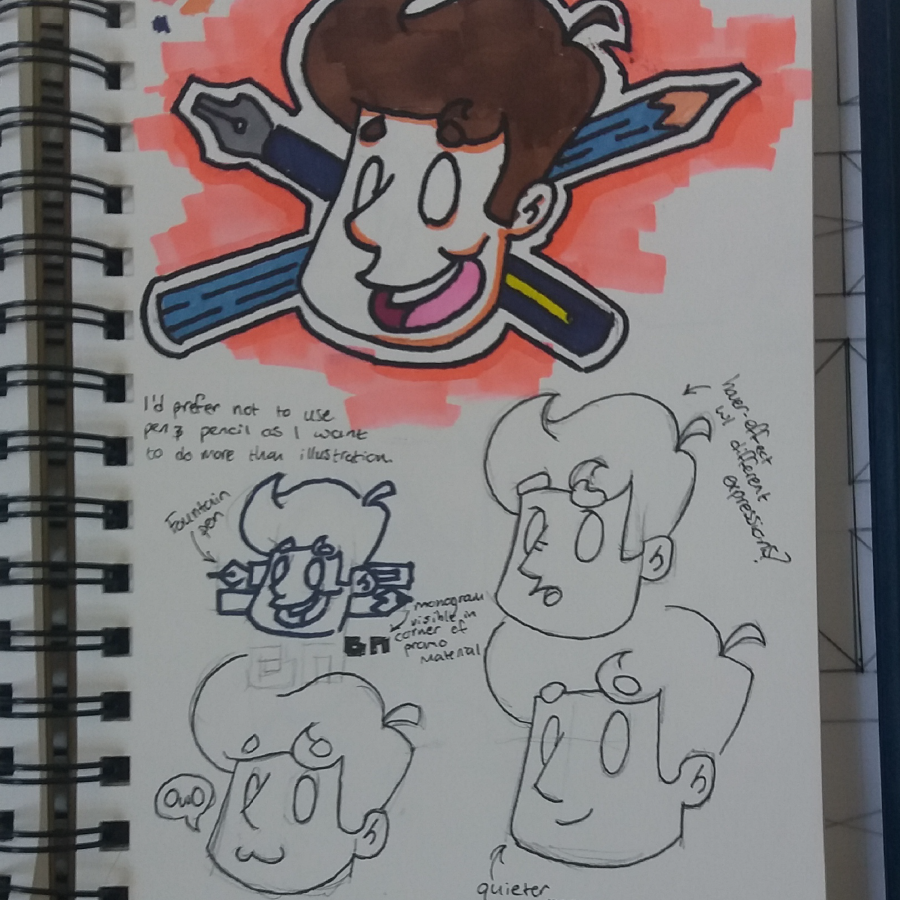 I'd prefer not to use
pen & pencil as I want
to do more than illustration.
hover-effect
w/ different
expressions?
Fountain
pen
monogram
visible in
corner of
promo
material
bn
OwO
quieter